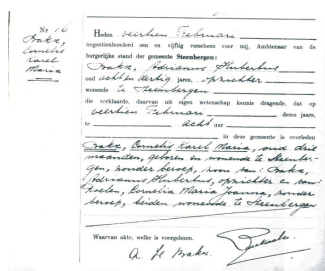 Nr 16
Braks,
Cornelis
Karel
Maria
Heden veertien Februari
negentienhonderd een en vijftig verscheen voor mij, Ambtenaar van de
burgerlijke stand der gemeente Steenbergen:
Braks, Adrianus Hubertus
oud acht en dertig jaren, oprichter
wonende te Steenbergen
die verklaarde, daarvan uit eigen wetenschap kennis dragende, dat op
veertien Februari dezes jaars,
te acht uur
in deze gemeente is overleden
Braks, Cornelis Karel Maria, oud drie
maanden, geboren en wonende te Steenber-
gen, zonder beroep, zoon van: Braks,
Adrianus Hubertus, oprichter en van:
Cornelia Maria Joanna, zonder
beroep, beiden wonende te Steenbergen
Waarvan akte, welke is voorgelezen.
A H Braks.